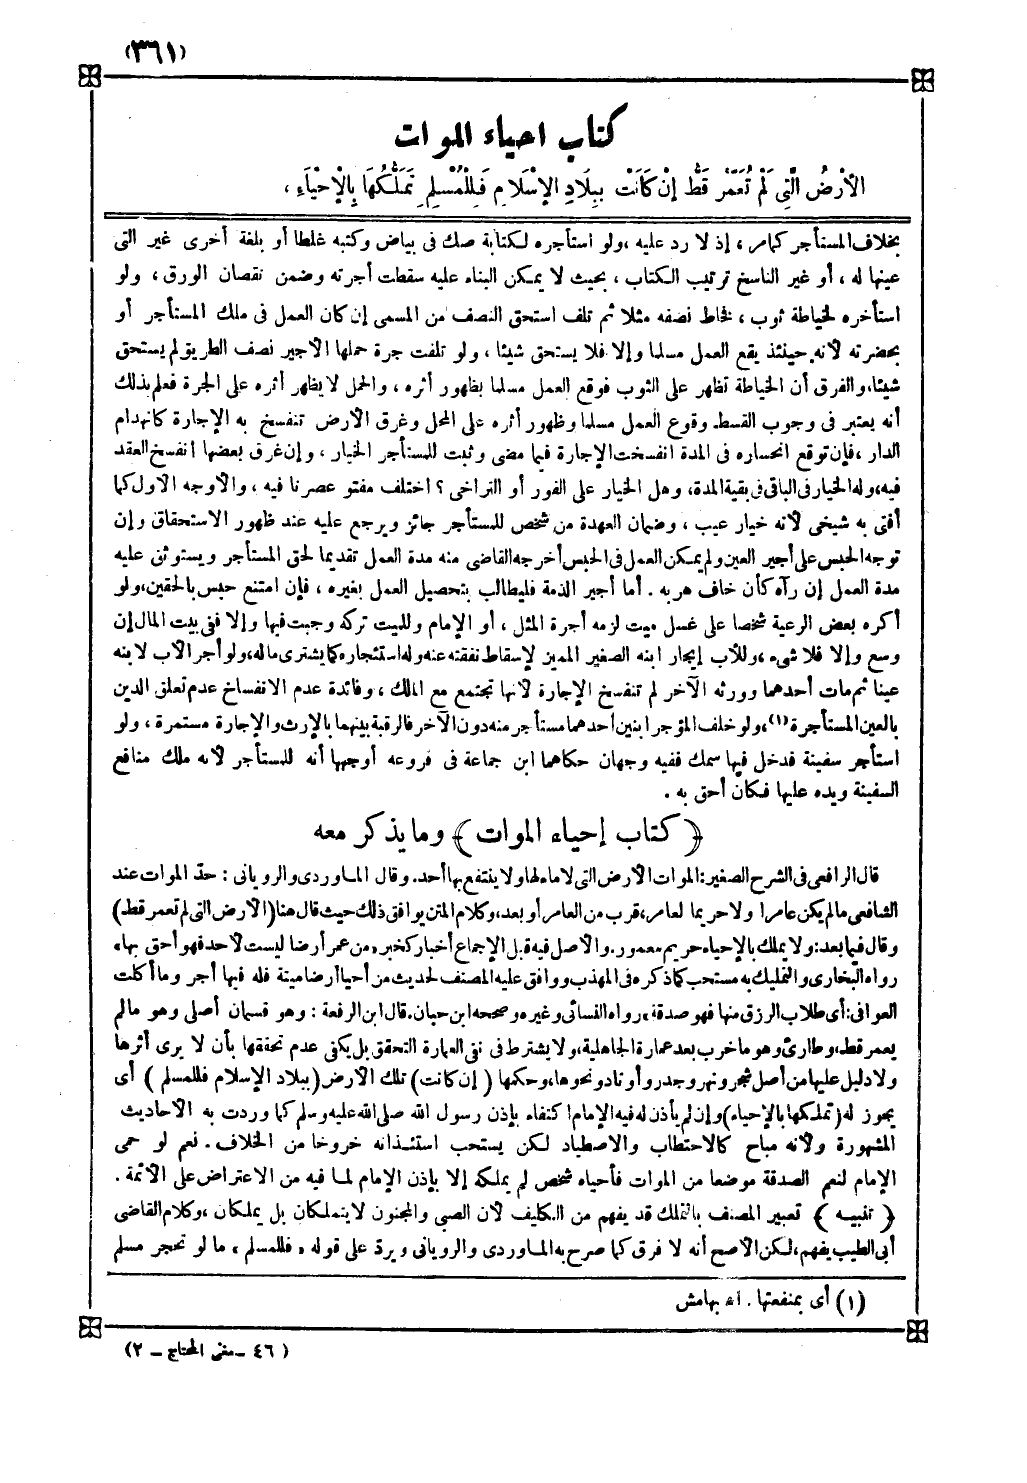 (٣٦١)
كتاب احياء الموات
الأَرْضُ الَّتِي لَمْ تُعَمَّرْ قَطُّ إِنْ كَانَتْ بِبِلَادِ الإِسْلَامِ فَلِلْمُسْلِمِ تَمَلُّكُهَا بِالْإِحْيَاءِ ،
بخلاف المستأجر كمامر ، إذ لا رد عليه ، ولو استأجره لكتابة صك فى بياض وكتبه غلطا أو بلغة أخرى غير التى
عينها له ، أو غير الناسخ ترتيب الكتاب ، بحيث لا يمكن البناء عليه سقطت أجرته وضمن نقصان الورق ، ولو
استأجره لخياطة ثوب ، فخاط نصفه مثلا ثم تلف استحق النصف من المسمى إن كان العمل فى ملك المستأجر أو
بحضرته لأنه حينئذ يقع العمل مسلما وإلا فلا يستحق شيئا ، ولو تلفت جرة حملها الأجير نصف الطريق لم يستحق
شيئا ، والفرق أن الخياطة تظهر على الثوب فوقع العمل مسلما بظهور أثره ، والحمل لا يظهر أثره على الجرة فعلم بذلك
أنه يعتبر فى وجوب القسط وقوع العمل مسلما وظهور أثره على المحل وغرق الأرض تنفسخ به الإجارة كانهدام
الدار ، فإن توقع انحساره فى المدة انفسخت الإجارة فيما مضى وثبت للمستأجر الخيار ، وإن غرق بعضها انفسخ العقد
فيه ، وله الخيار فى الباقى فى بقية المدة ، وهل الخيار على الفور أو التراخى ؟ اختلف مفتو عصرنا فيه ، والأوجه الأول كما
أفتى به شيخى لأنه خيار عيب ، وضمان العهدة من شخص للمستأجر جائز ويرجع عليه عند ظهور الاستحقاق وإن
توجه الحبس على أجير العين ولم يمكن العمل فى الحبس أخرجه القاضى منه مدة العمل تقديما لحق المستأجر ويستوثق عليه
مدة العمل إن رآه كأن خاف هربه . أما أجير الذمة فليطالب بتحصيل العمل بغيره ، فإن امتنع حبس بالحقين ، ولو
أكره بعض الرعية شخصا على غسل ميت لزمه أجرة المثل ، أو الإمام وللميت تركه وجبت فيها وإلا ففى بيت المال إن
وسع وإلا فلا شىء ، وللأب إيجار ابنه الصغير المميز لإسقاط نفقته عنه وله استئجاره كما يشترى ماله ، ولو أجر الأب لابنه
عينا ثم مات أحدهما وورثه الآخر لم تنفسخ الإجارة لأنها تجتمع مع الملك ، وفائدة عدم الانفساخ عدم تعلق الدين
بالعين المستأجرة (١) ، ولو خلف المؤجر ابنين أحدهما مستأجر منه دون الآخر فالرقبة بينهما بالإرث والإجارة مستمرة ، ولو
استأجر سفينة فدخل فيها سمك ففيه وجهان حكاهما ابن جماعة فى فروعه أوجهها أنه للمستأجر لأنه ملك منافع
السفينة ويده عليها فكان أحق به .
﴿ كتاب إحياء الموات ﴾ وما يذكر معه
قال الرافعى فى الشرح الصغير : الموات الأرض التى لا ماء لها ولا ينتفع بها أحد . وقال الماوردى والرويانى : حدّ الموات عند
الشافعى مالم يكن عامرا ولا حريما لعامر ، قرب من العامر أو بعد ، وكلام المتن يوافق ذلك حيث قال هنا ( الأرض التى لم تعمر قط )
وقال فيما بعد : ولا يملك بالإحياء حريم معمور . والأصل فيه قبل الإجماع أخبار كخبر « من عمر أرضا ليست لأحد فهو أحق بها »
رواه البخارى والتمليك به مستحب كما ذكره فى المهذب ووافق عليه المصنف لحديث من أحيا أرضا ميتة فله فيها أجر وما أكلت
العوافى : أى طلاب الرزق منها فهو صدقة » رواه النسائى وغيره وصححه ابن حبان . قال ابن الرفعة : وهو قسمان أصلى وهو مالم
يعمر قط ، وطارئ وهو ما خرب بعد عمارة الجاهلية ، ولا يشترط فى نفى العمارة التحقق بل يكفى عدم تحققها بأن لا يرى أثرها
ولا دليل عليها من أصل شجر ونهر وجدر وأوتاد ونحوها ، وحكمها ( إن كانت ) تلك الأرض ( ببلاد الإسلام فللمسلم ) أى
يجوز له ( تملكها بالإحياء ) وإن لم يأذن له فيه الإمام اكتفاء بإذن رسول الله صلى الله عليه وسلم كما وردت به الأحاديث
المشهورة ولأنه مباح كالاحتطاب والاصطياد لكن يستحب استئذانه خروجا من الخلاف . نعم لو حمى
الإمام لنعم الصدقة موضعا من الموات فأحياه شخص لم يملكه إلا بإذن الإمام لما فيه من الاعتراض على الأئمة .
﴿ تنبيه ﴾ تعبير المصنف بالتملك قد يفهم من التكليف لأن الصبى والمجنون لا يتملكان بل يملكان ، وكلام القاضى
أبى الطيب يفهم ، لكن الأصح أنه لا فرق كما صرح به الماوردى والرويانى ويردّ على قوله « فللمسلم » ما لو تحجر مسلم
(١) أى بمنفعتها . اه بهامش
( ٤٦ - مغنى المحتاج - ٢ )